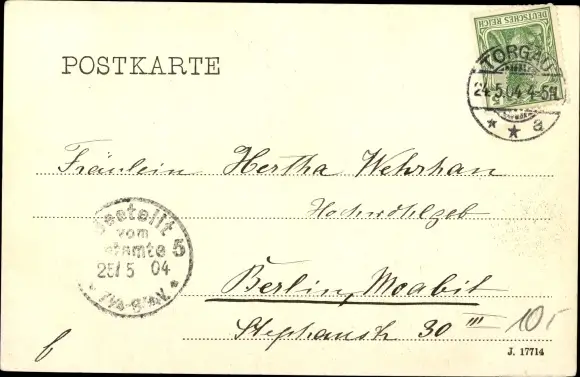 DEUTSCHES REICH
5
POSTKARTE
TORGAU
24.5.04 4-5N
* * a
Fräulein Hertha Wehrhan
Hochwohlgeb
Bestellt
vom
Postamte 5
25/5 04
Berlin, Moabit
Stephanstr 30 III 10,-
b
J. 17714